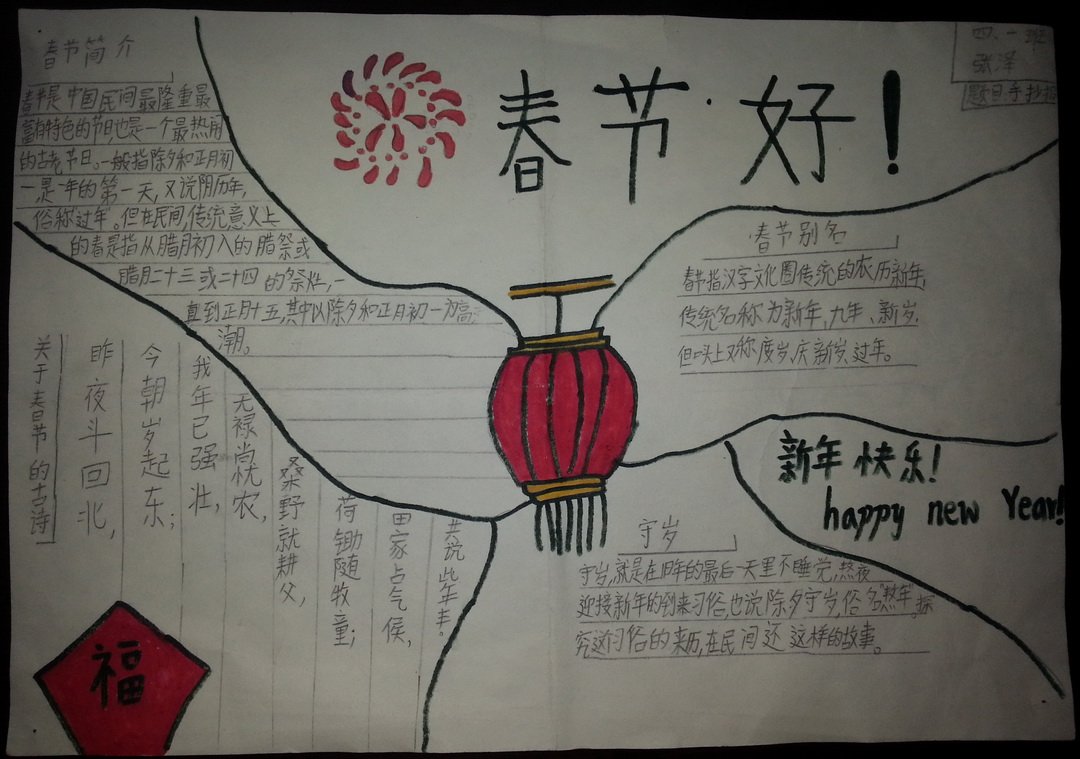 春节好！
四、一班
张泽
题目手抄报
春节简介
春节是中国民间最隆重最
富有特色的节日,也是一个最热闹
的古老节日。一般指除夕和正月初
一是一年的第一天,又说阴历年,
俗称"过年"。但在民间,传统意义上
的春是指从腊月初入的腊祭或
腊月二十三或二十四的祭灶,一
直到正月十五,其中以除夕和正月初一为高
潮。
春节别名
春节指汉字文化圈传统的农历新年,
传统名称为新年、九年、新岁,
但口头上又称度岁、庆新岁、过年。
新年快乐!
happy new Year!
守岁
守岁,就是在旧年的最后一天里不睡觉,熬夜
迎接新年的到来习俗,也说除夕守岁,俗名"熬年"。探
究这习俗的来历,在民间还 这样的故事。
关于春节的古诗
昨夜斗回北,
今朝岁起东;
我年已强壮,
无禄尚忧农,
桑野就耕父,
荷锄随牧童;
田家占气侯,
共说些年丰。
福